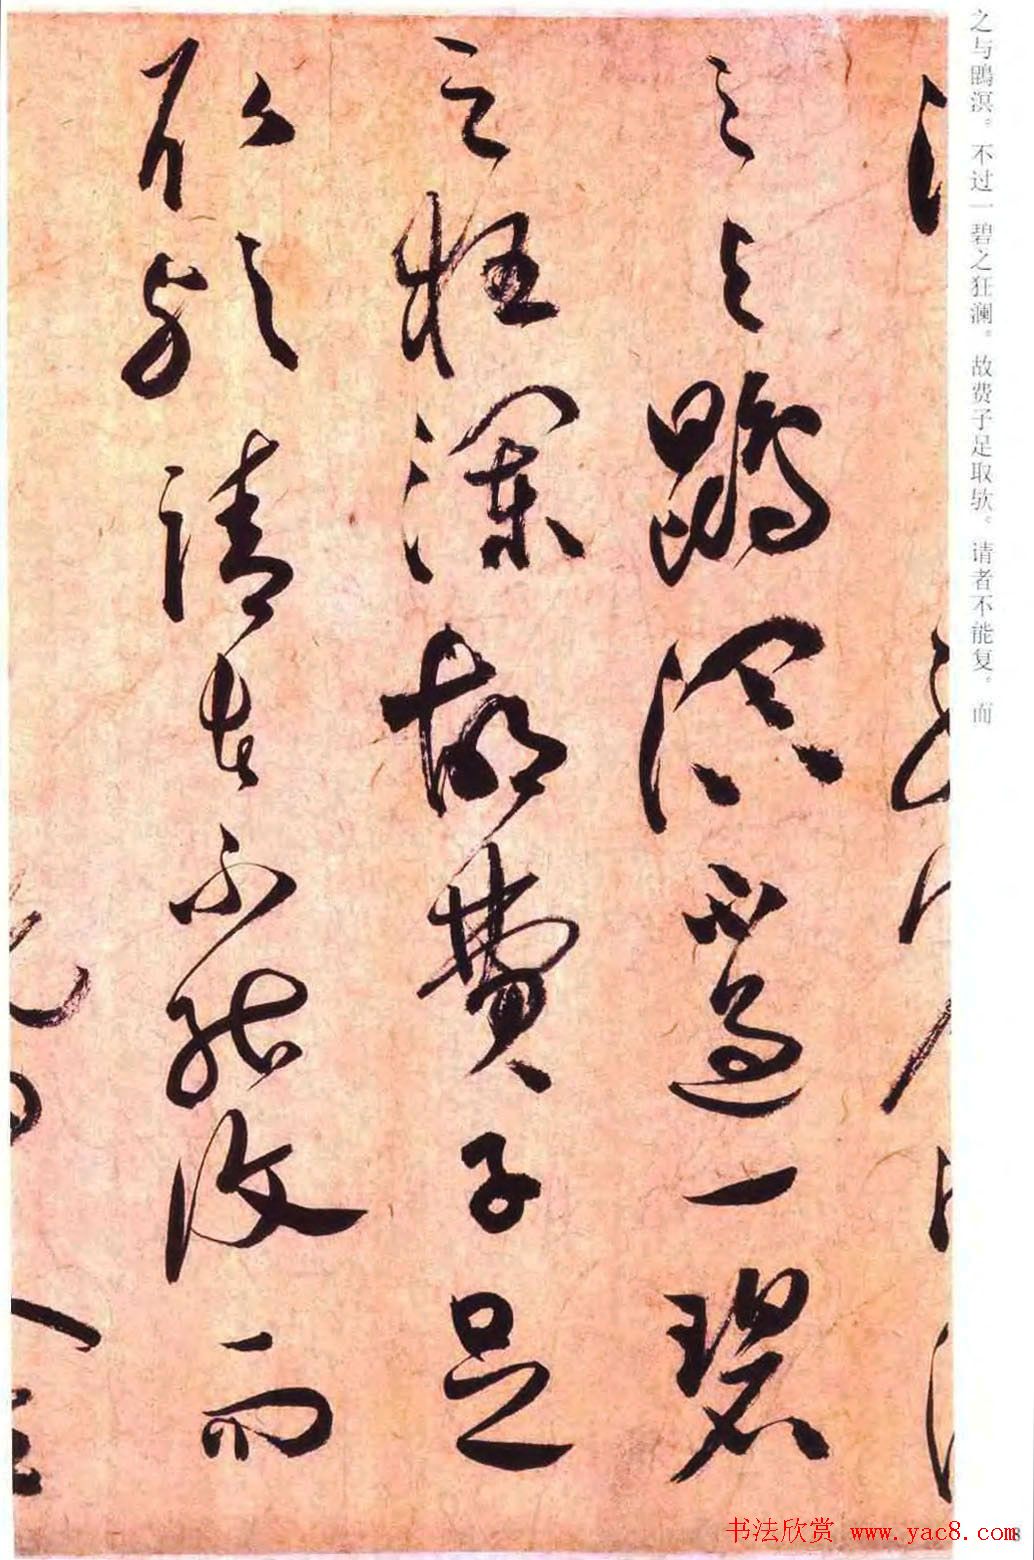 之与鹍溟。不过一碧之狂澜。故费子足取欤。请者不能复。而
之与鵾溟不過一碧
之狂瀾故費子足
取歟請者不能復而
书法欣赏 www.yac8.com
8